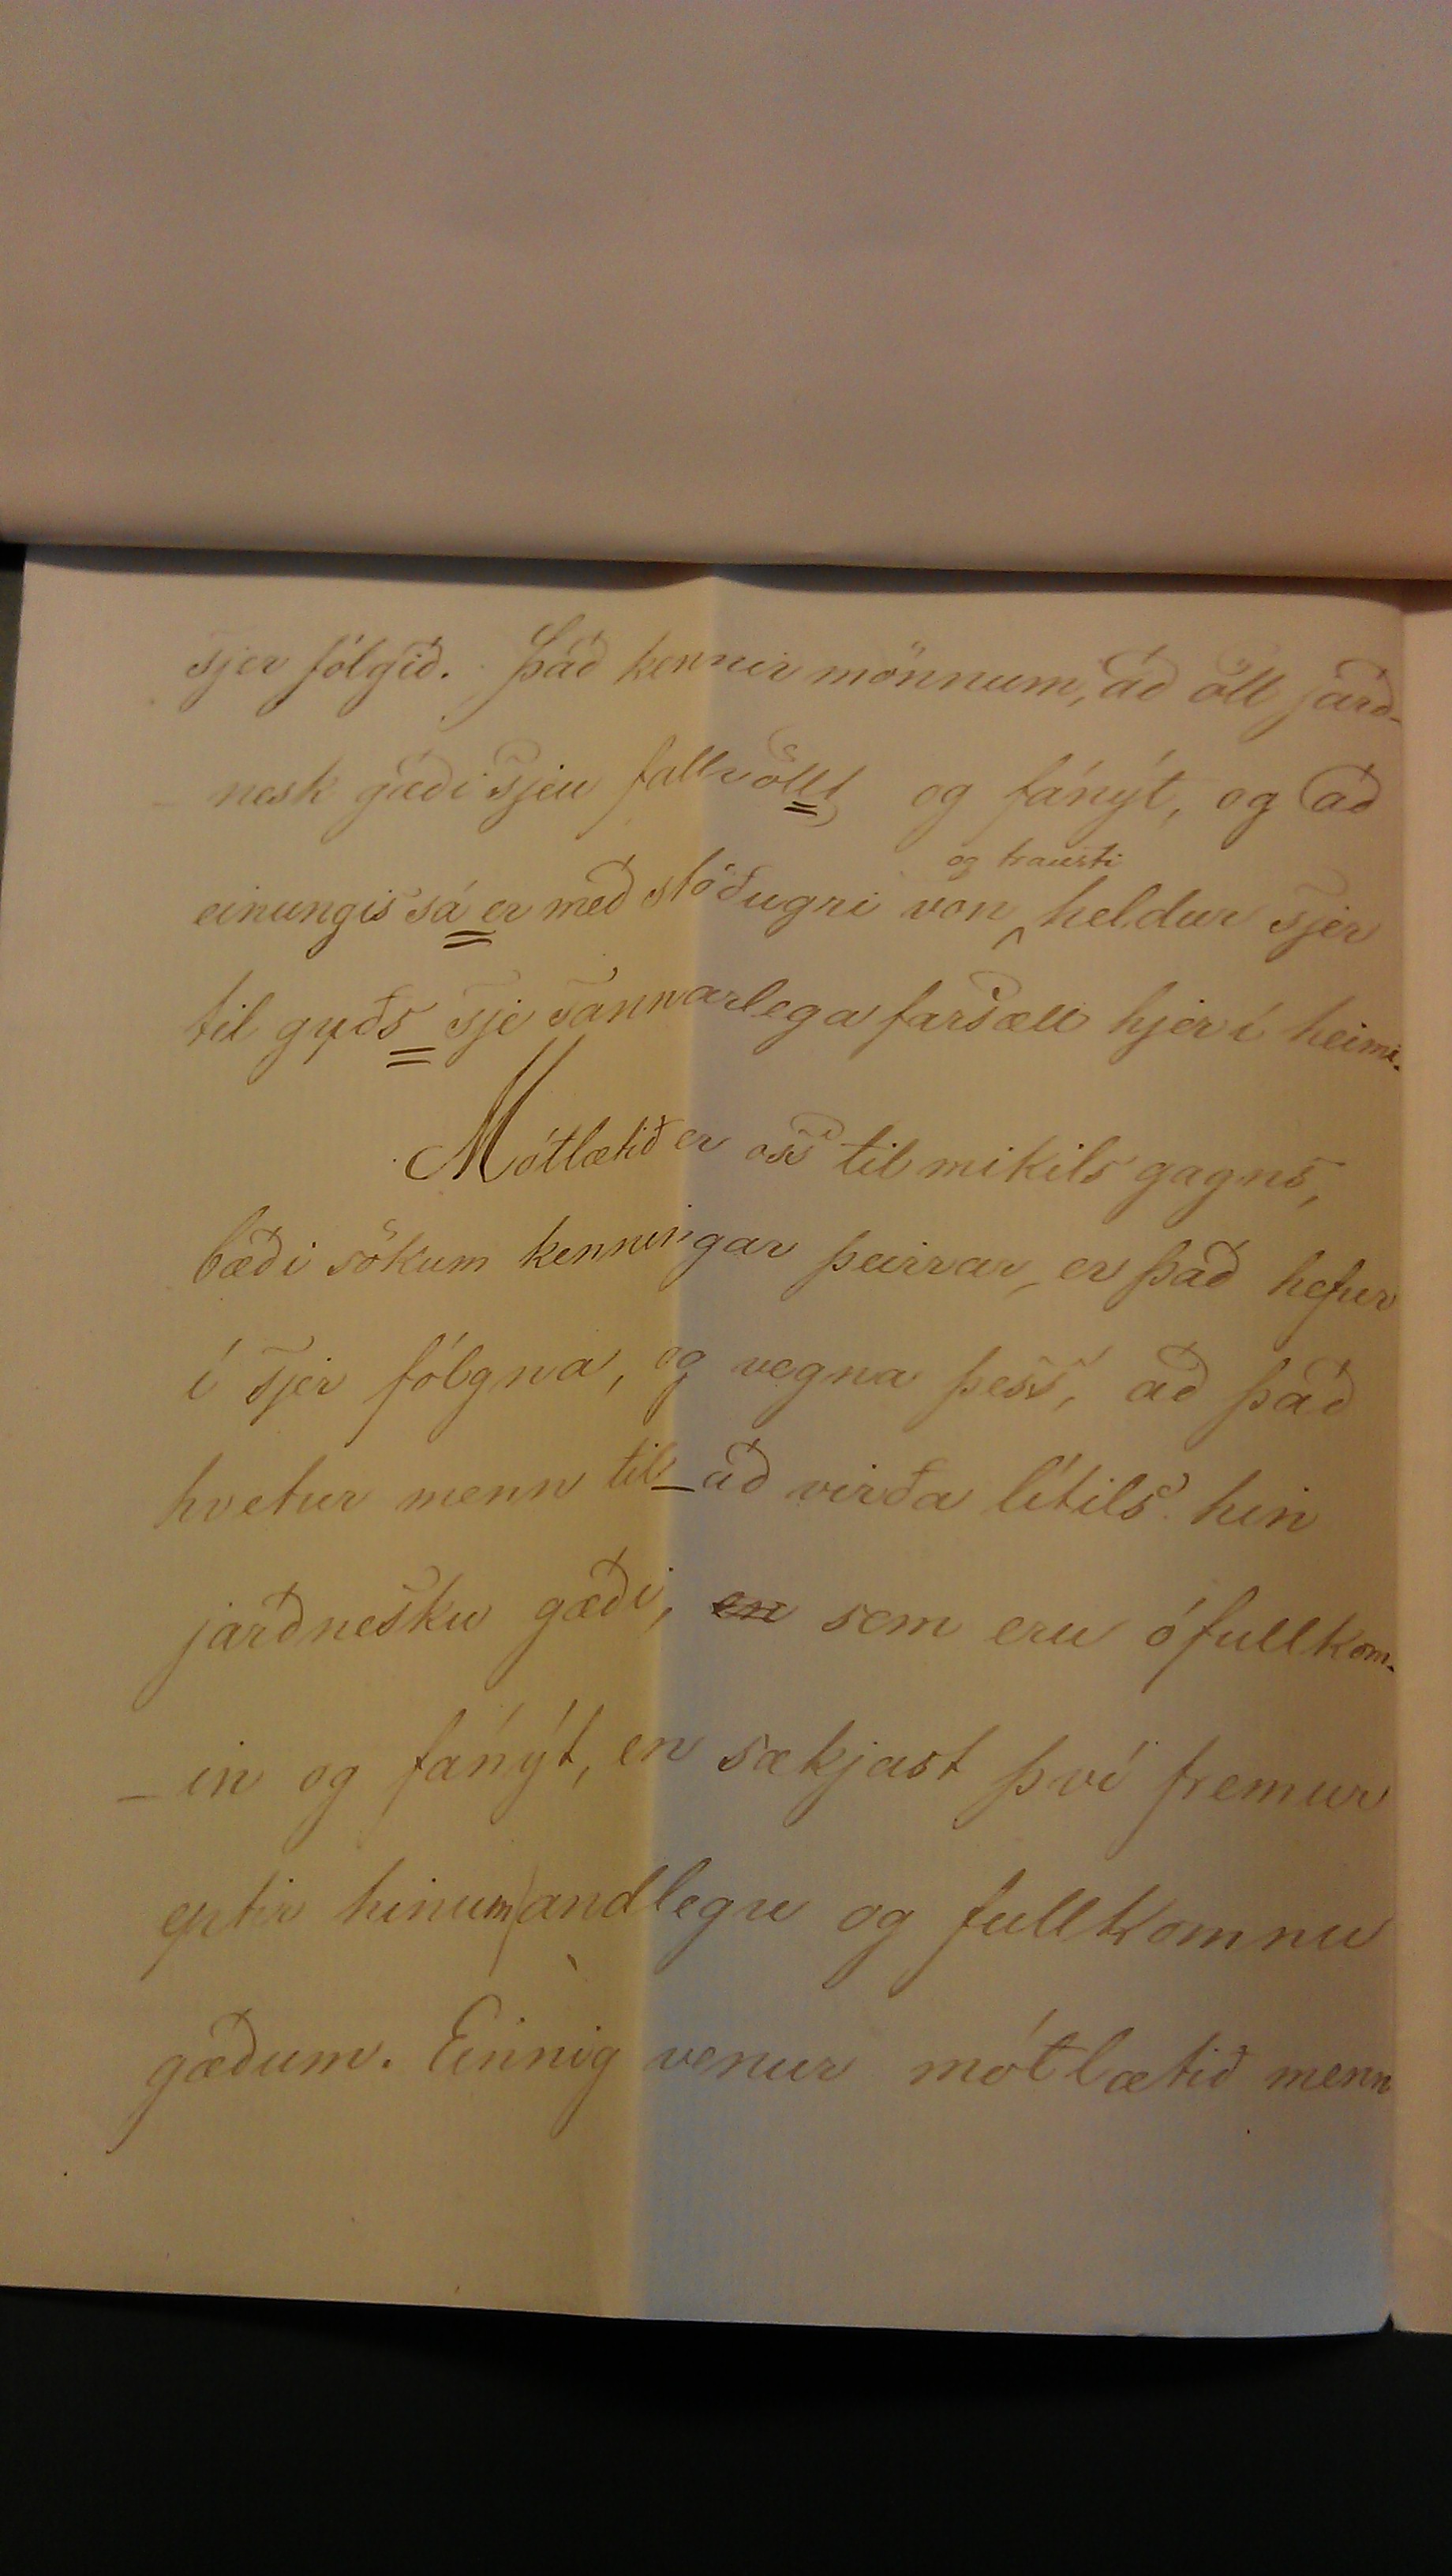 sjer fólgið. Það kennir mönnum, að öll jarð-
- nesk gæði sjeu fallvöllt og fánýt, og að
og trausti
einungis sá er með stöðugri von heldur sjer
til guðs sje sannarlega farsæll hjer í heimi.
Mótlætið er oss til mikils gagns,
bæði sökum kenningar þeirrar, er það hefur
í sjer fólgna, og vegna þess, að það
hvetur menn til að virða lítils hin
jarðnesku gæði, en sem eru ófullkom-
- in og fánýt, en sækjast því fremur
eptir hinum andlegu og fullkomnu
gæðum. Einnig venur mótlætið menn